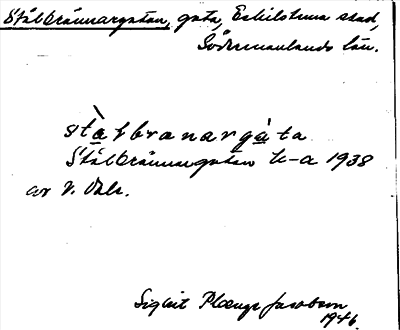 Stålbrännargatan, gata, Eskilstuna stad,
Södermanlands län.
stàlbranargàta
Stålbrännargatan tr-a 1938
av V. Dahr.
Sigbrit Plænge Jacobson
1946.